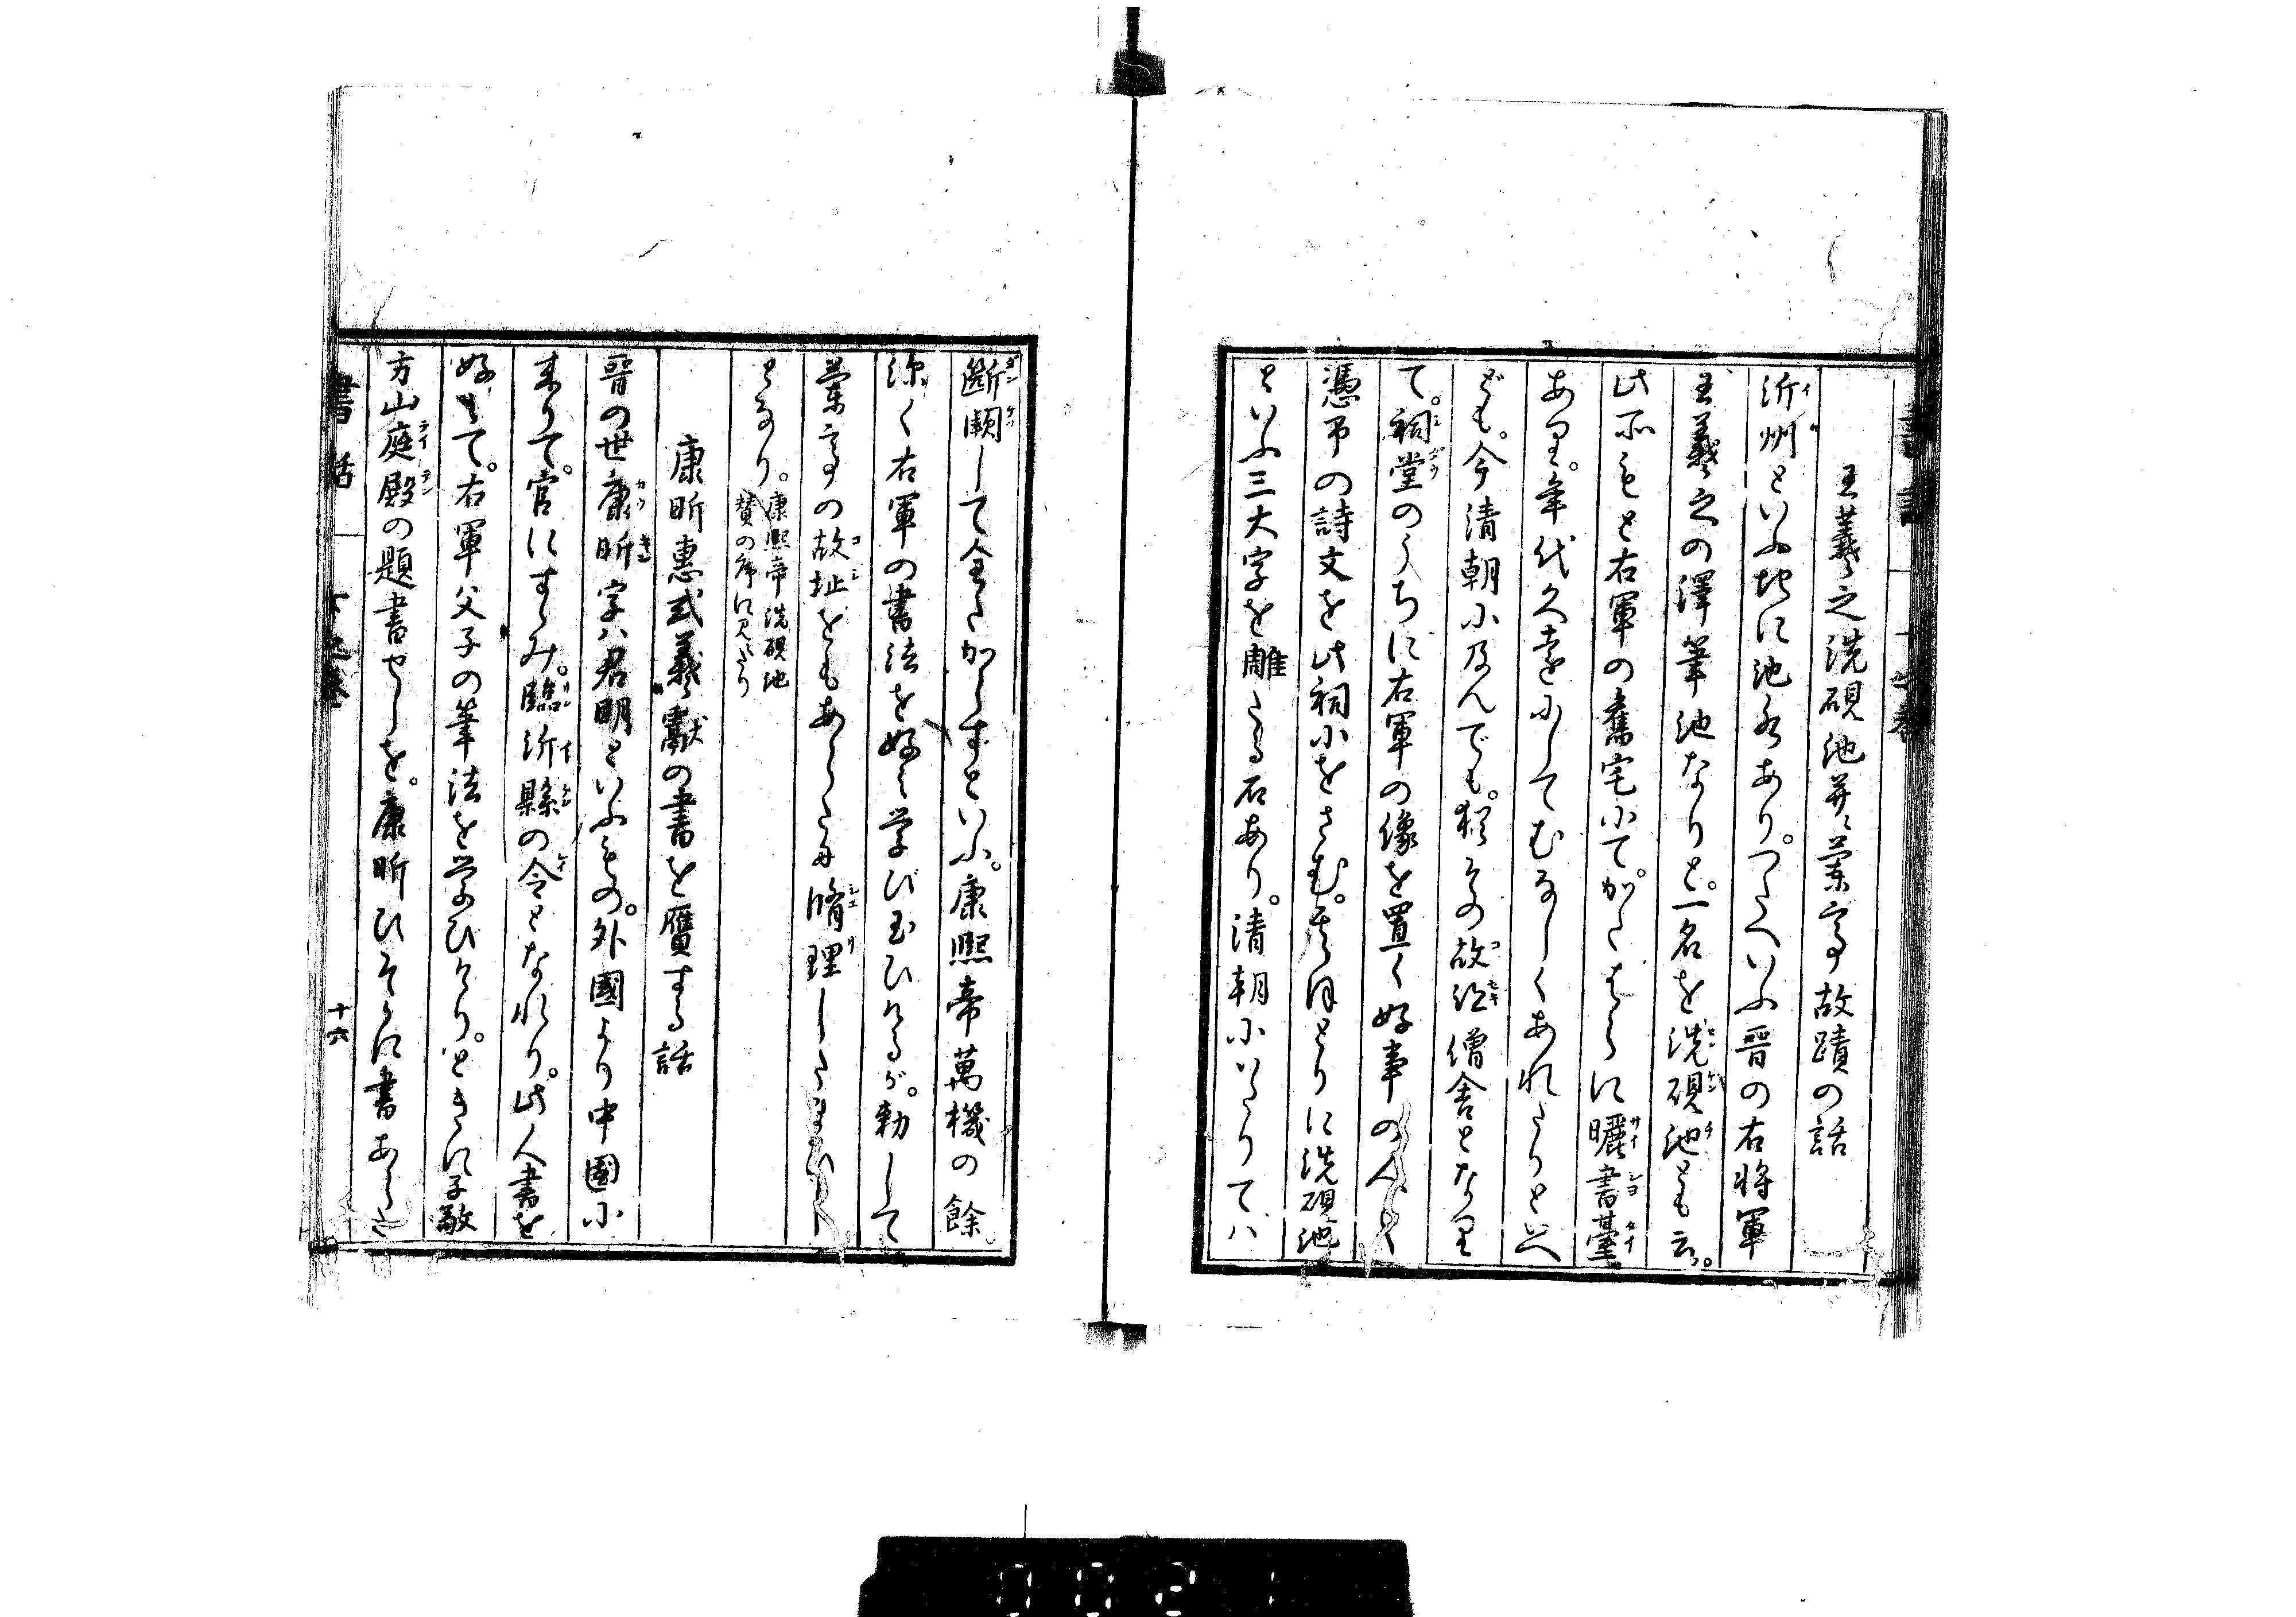 王羲之洗硯池并蘭亭故蹟の話
沂州といふ地に池水あり。つたへいふ晋の右将軍
王羲之の澤筆池なりと。一名を洗硯池とも云。
此所もと右軍の舊宅にて。かたはらに曬書臺
あり。年代久遠にしてむなしくあれたりといへ
ども。今清朝に及んでも。猶その故迹僧舎となり
て。祠堂のうちに右軍の像を置く好事の人〻
憑弔の詩文を此祠にをさむ。其ほとりに洗硯池
といふ三大字を雕たる石あり。清朝にいたりてハ
断瀬して全たからずといふ。康熙帝萬機の餘。
深く右軍の書法を好み学び玉ひけるが。勅して
蘭亭の故址をもあらため脩理したまひし
となり。康熙帝洗硯池
賛の序に見えたり
康昕惠式羲獻の書を贋する話
晋の世康昕字ハ君明といふもの。外國より中國に
来りて。官にすゝみ。臨沂縣の令となれり。此人書を
好みて。右軍父子の筆法を学ひけり。ときに子敬
方山庭殿の題書せしを。康昕ひそかに書あらた
書話
下之巻
十六